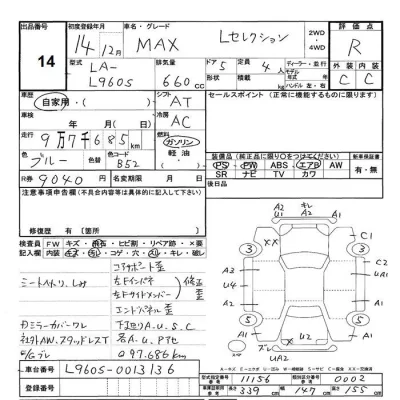 出品番号 14
初度登録年月 14年12月
車名・グレード MAX Lセレクション
2WD
・
4WD
評価点 R
型式 LA-L960S
排気量 660 CC
ドア 5
定員 4人
ディーラー・並行
形状
積載 kg
モデル年式
ハンドル 左・右
外装 C
内装 C
車歴 自家用・( )
シフト AT
セールスポイント (正常に機能するものに限る)
車検 年 月( )日
冷房 AC
走行 9万7千685km
燃料 ガソリン
軽油
色 ブルー
色替
カラーコード B52
装備品 (純正品に限り○をつけてください)
新車保証書
PS PW ABS エアB AW
SR ナビ TV カワ
有・無
R券 9040 円
名変期限 月 日
後日品
注意事項申告欄(不具合内容等は具体的に記入して下さい)
修復歴 有( )箇所
検査員記入欄
FW キズ・飛石・ヒビ割・リペア跡・×要
内装 キズ・汚レ・コゲ・穴・スリ・キレ・破レ
コアサポート歪
左Fインパネ
左Fサイドメンバー
修正歪
エンドパネル歪
シートヘタリ、しみ
カミラーカバーワレ
下廻りA.U.S.C
各A.U.Pte
097.686km
A2 キレ A2
U1 A1
XX
3 3
C1
C2
UA1
A3
U4
A2
A1
5 5
U2
A1
A1
UA2
車台番号 L960S-0013136
登録番号
A=キズ E=エクボ U=凹み W=補修跡 S=サビ C=腐食 XX=交換済
型式指定番号 11156
類別区分番号 0002
車両寸法 長さ 339 cm 幅 147 cm 高さ 155 cm